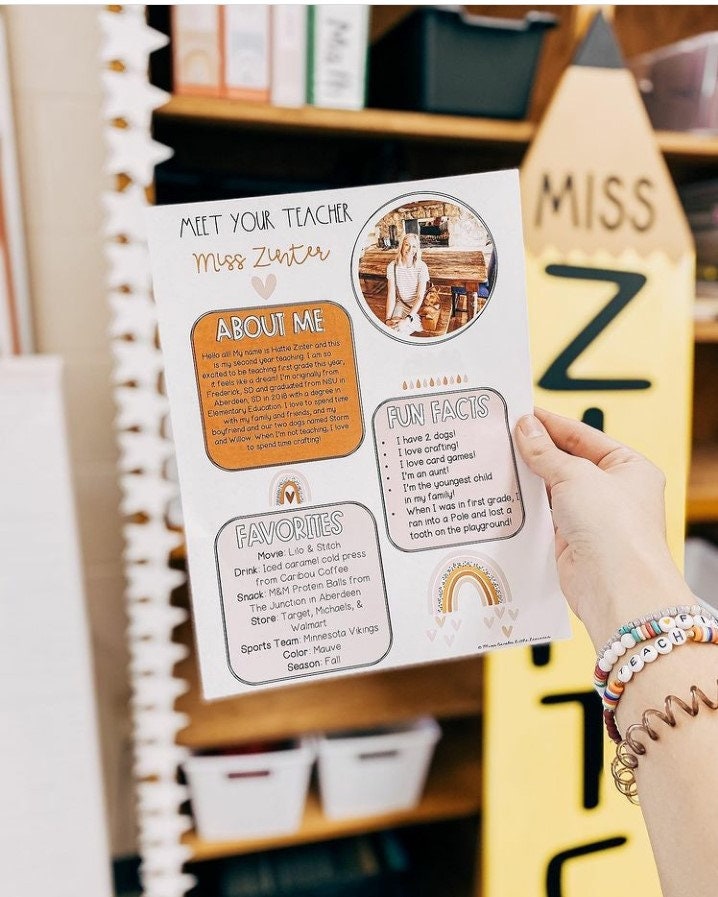 Math
MISS
Z
I
T
MEET YOUR TEACHER
Miss Zinter
ABOUT ME
Hello all! My name is Hattie Zinter and this
is my second year teaching. I am so
excited to be teaching first grade this year,
it feels like a dream! I'm originally from
Frederick, SD and graduated from NSU in
Aberdeen, SD in 2018 with a degree in
Elementary Education. I love to spend time
with my family and friends, and my
boyfriend and our two dogs named Storm
and Willow. When I'm not teaching, I love
to spend time crafting!
FUN FACTS
• I have 2 dogs!
• I love crafting!
• I love card games!
• I'm an aunt!
• I'm the youngest child
in my family!
• When I was in first grade, I
ran into a Pole and lost a
tooth on the playground!
FAVORITES
Movie: Lilo & Stitch
Drink: Iced caramel cold press
from Caribou Coffee
Snack: M&M Protein Balls from
The Junction in Aberdeen
Store: Target, Michaels, &
Walmart
Sports Team: Minnesota Vikings
Color: Mauve
Season: Fall
TEACH